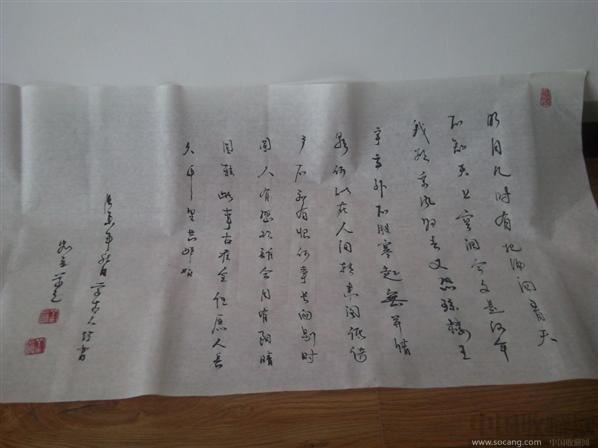 明月几时有把酒问青天
不知天上宫阙今夕是何年
我欲乘风归去又恐琼楼玉
宇高处不胜寒起舞弄清
影何似在人间转朱阁低绮
户不应有恨何事长向别时
圆人有悲欢离合月有阴晴
圆缺此事古难全但愿人长
久千里共婵娟
www.socang.com 中国收藏网